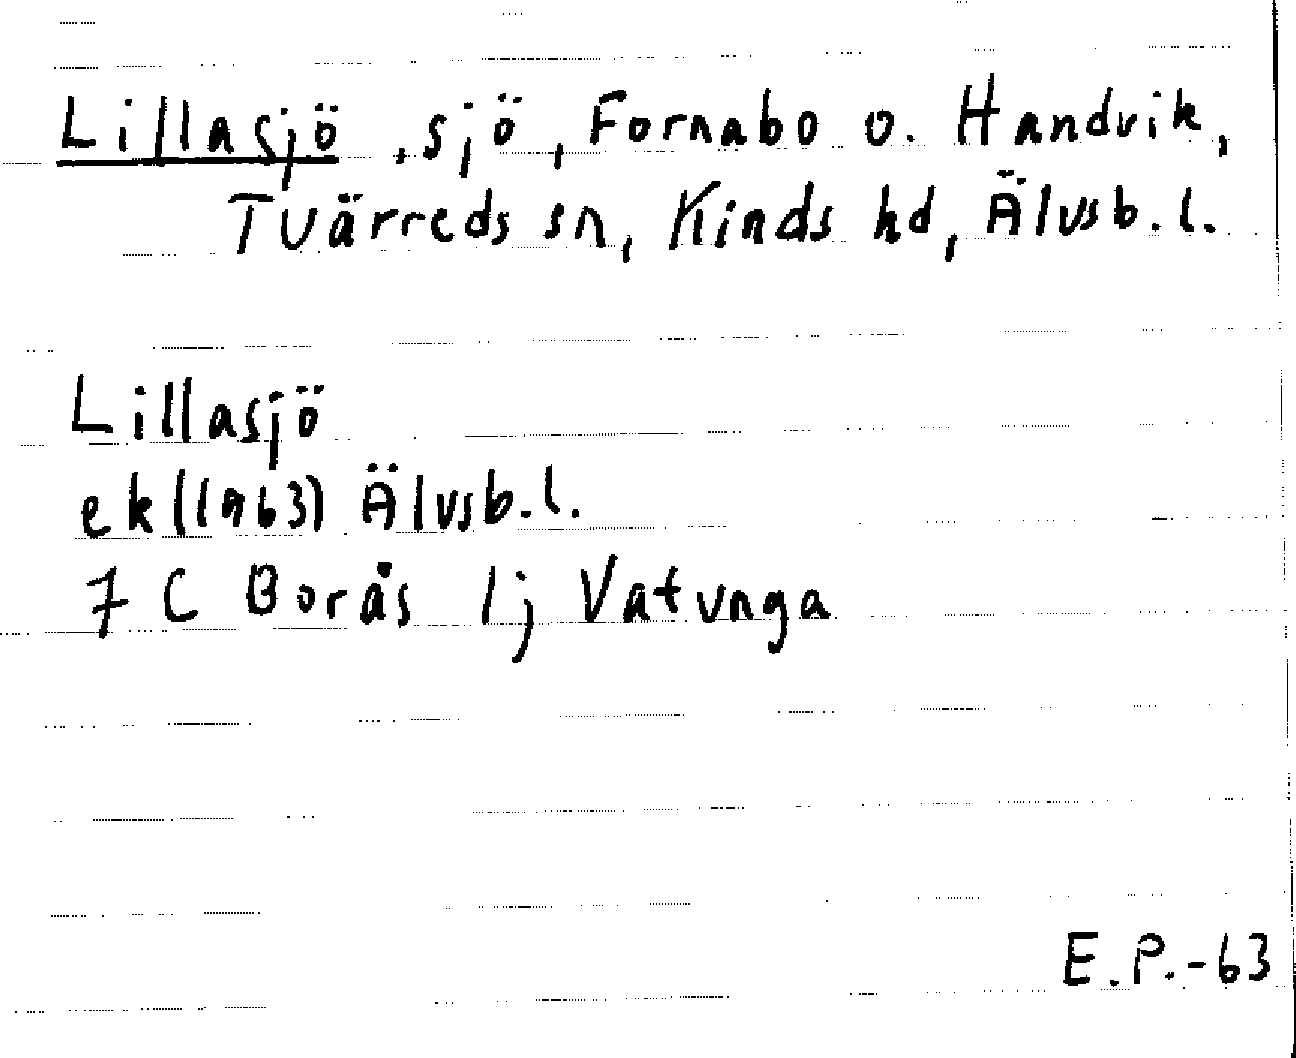 Lillasjö, sjö, Fornabo o. Handvik,
Tvärreds sn, Kinds hd, Älvsb. l.
Lillasjö
ekl(1963) Älvsb. l.
7 C Borås 1j Vatunga
E.P.-63